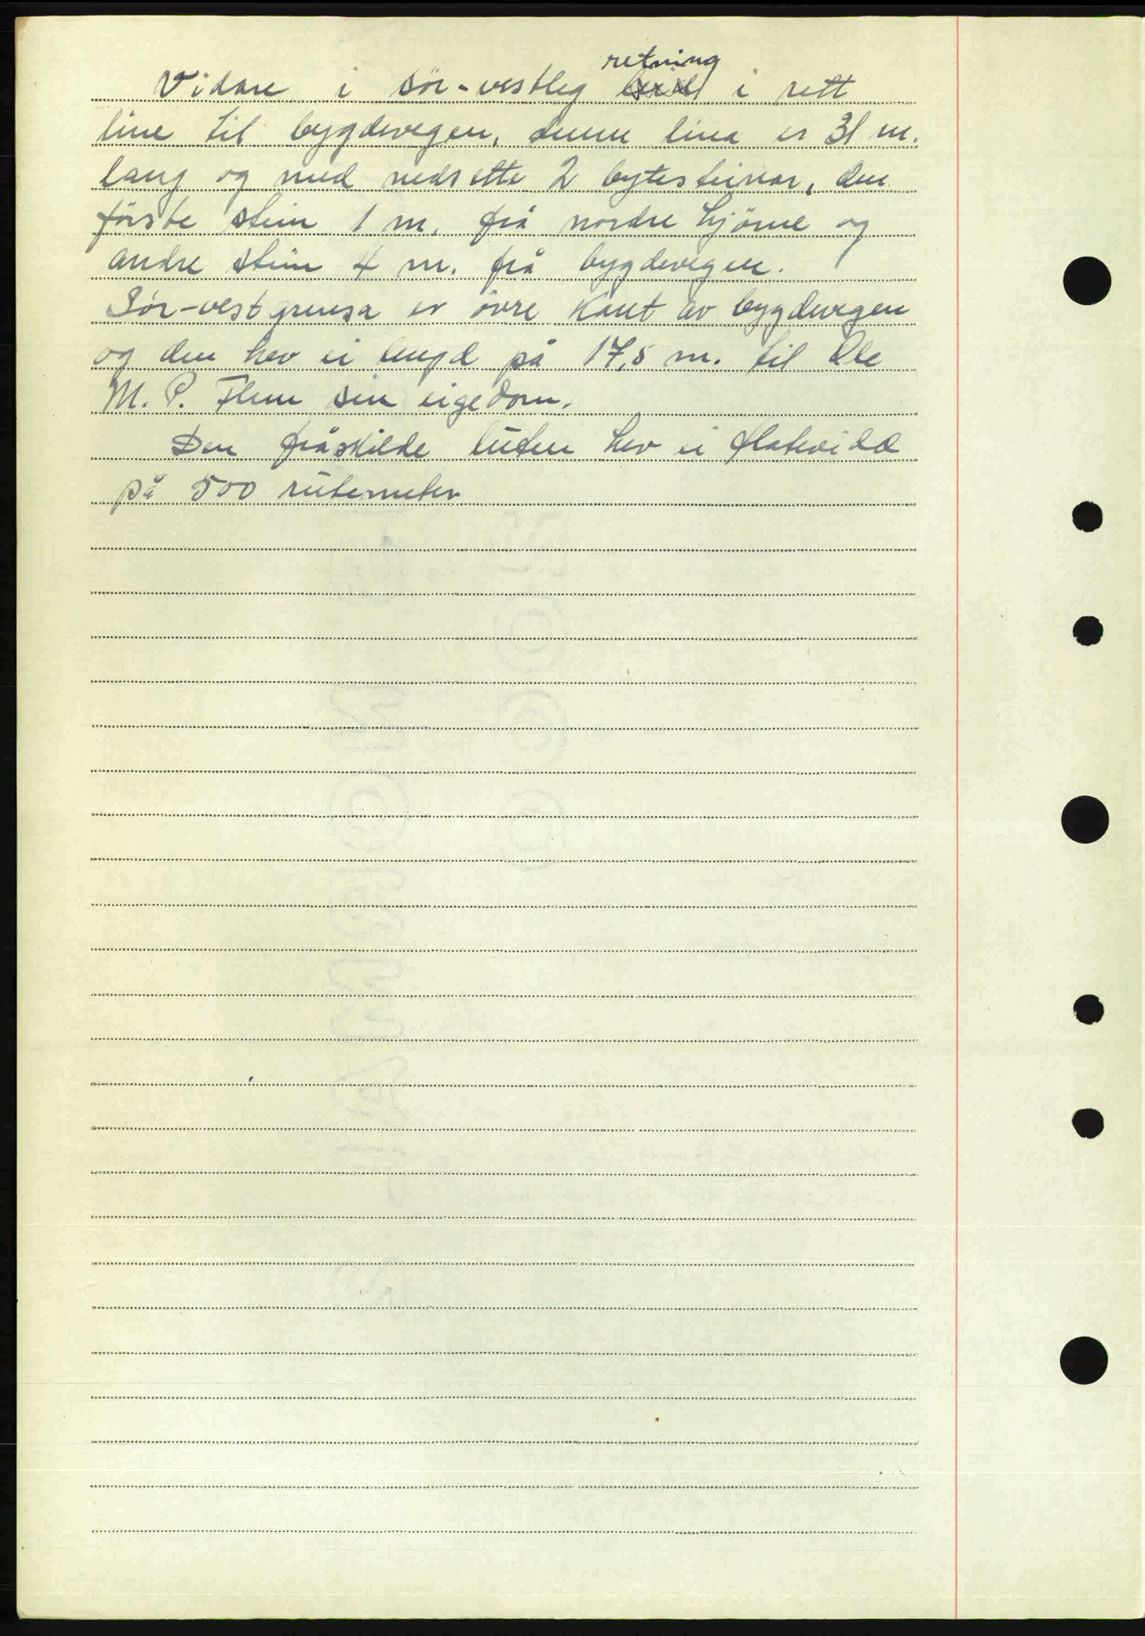 retning
Vidare i sör-vestleg i rett
line til bygdevegen, denne lina er 31 m.
lang og med nedsette 2 bytesteinar, den
förste stein 1 m. frå nordre hjörne og
andre stein 4 m. frå bygdevegen.
Sör-vestgrensa er övre kant av bygdevegen
og den hev ei lengd på 17,5 m. til Ole
M. P. Flem sin eigedom.
Den fråskilde luten hev ei flatevidd
på 500 rutemeter